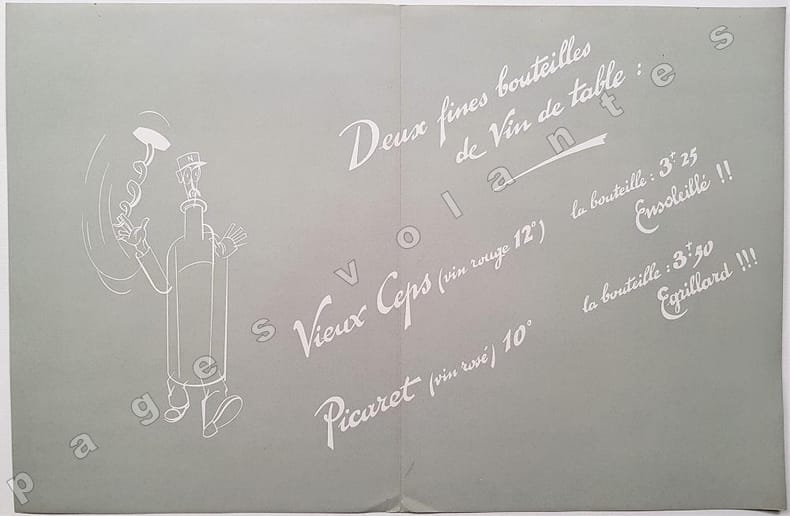 Deux fines bouteilles
de Vin de table :
Vieux Ceps (vin rouge 12°)
la bouteille : 3f 25
Ensoleillé !!
Picaret (vin rosé) 10°
la bouteille : 3f 50
Egrillard !!!
N
pages volantes